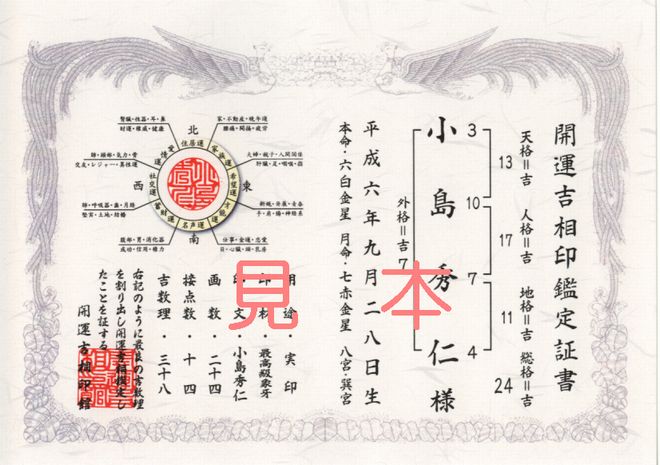 開運吉相印鑑定証書
天格＝吉
人格＝吉
地格＝吉
総格＝吉
13
17
11
24
3
10
7
4
小島秀仁様
外格＝吉
7
平成六年九月二八日生
本命・六白金星 月命・七赤金星 八宮・巽宮
見本
用途・実印
印材・最高級象牙
印文・小島秀仁
画数・二十四
接点数・十四
吉数理・三十八
右記のように最良の吉数理
を割り出し開運吉相鑑定し
たことを証する
開運吉相印館
北
東
南
西
住居運
家庭運
希望運
才能運
名声運
蓄財運
社交運
愛情運
腎臓・性器・耳・鼻
財運・権威・健康
家・不動産・晩年運
腰痛・関節・疲労
夫婦・親子・人間関係
肝臓・足・咽喉・指
新規・発展・青春
仕事・金運・恋愛
目・心臓・頭・乳房
腹部・胃・消化器
成功・信用・権力
肺・呼吸器・歯・月経
堅実・土地・結婚
肺・頭部・気力・骨
交友・レジャー・異性運